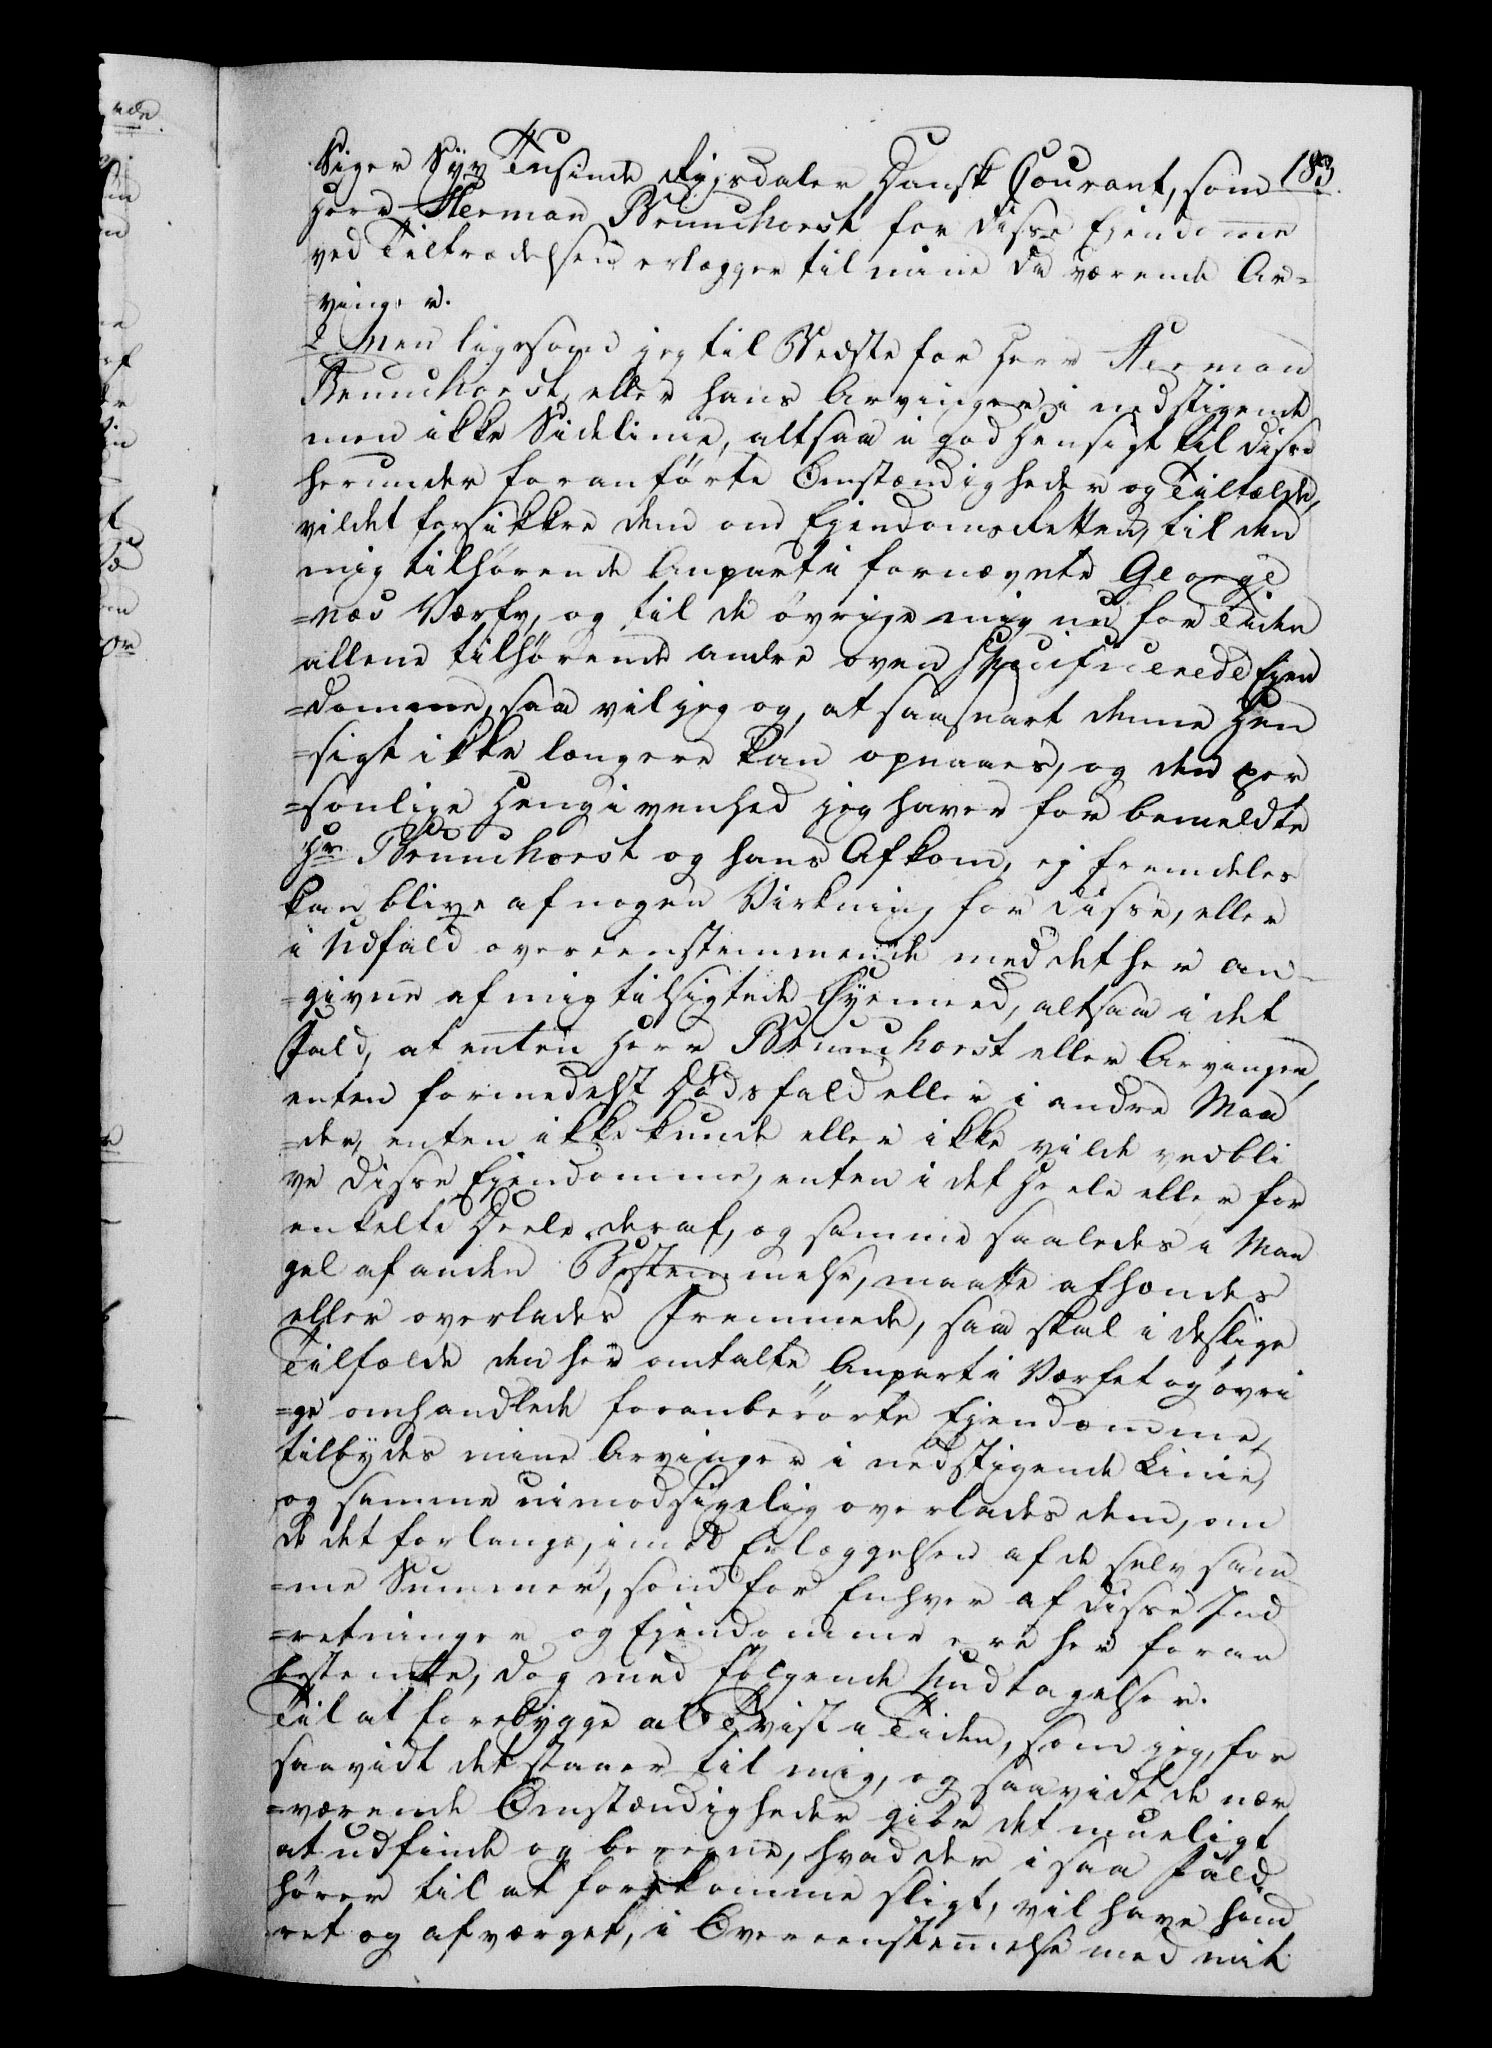 183.
Siger Syv Tusinde Rigsdaler Dansk Courant, som
Herr Herman Brunchorst for disse Ejendomme
ved Tiltrædelsen erlægger til mine da værende Ar=
=vinger.
Men ligesom jeg til Bedste for Herr Herman
Brunchorst, eller hans Arvinger i nedstigende
men ikke Sidelinie, altsaa i god Hensigt til disse
herunder foranførte Omstændigheder og Tilfælde,
vildet forsikkre dem om Ejendomsretten, til den
mig tilhørende Anpart i fornævnte George
=næs Værfv, og til de øvrige mig nu for Tiden
allene tilhørende andre oven Specificerede Ejen
=domme, saa vil jeg og, at saasnart denne Hen
=sigt ikke længere kan opnaaes, og den per
=sonlige Hengivenhed jeg haver for bemeldte
Hr Brunchorst og hans Afkom, ej fremdeles
kan blive af nogen Virkning for disse, eller
i Udfald overeenstemmende med det her an=
=givne af mig tilsigtede Øyemed, altsaa i det
Fald, at enten Herr Brunchorst eller Arvinger,
enten formedelst Dødsfald eller i andre Maa
=der, enten ikke kunde eller ikke vilde vedbli
ve disse Ejendomme, enten i det Heele eller for
enkelte Deele deraf, og samme saaledes i Man
gel af anden Bestemmelse, maatte afhændes
eller overlades Fremmede, saa skal i deslige
Tilfælde den her omtalte Anpart i Værfet og øvri
=ge omhandlede foranberørte Ejendomme,
tilbydes mine Arvinger i nedstigende Linie,
og samme uimodsigelig overlades dem, om
de det forlange, imod Erlæggelsen af de selv sam
=me Summer, som for Enhver af disse Ind
=retninger og Ejendomme ere her foran
bestemte, dog med følgende Undtagelser.
Til at forebygge al Tvist i Tiden, som jeg, for
saavidt det staaer til mig, og saavidt de nær
=værende Omstændigheder giør det mueligt
at udfinde og beregne, hvad der i saa Fald
hører til at forekomme sligt, vil have hind
ret og afværget, i Overeenstemelse med mit